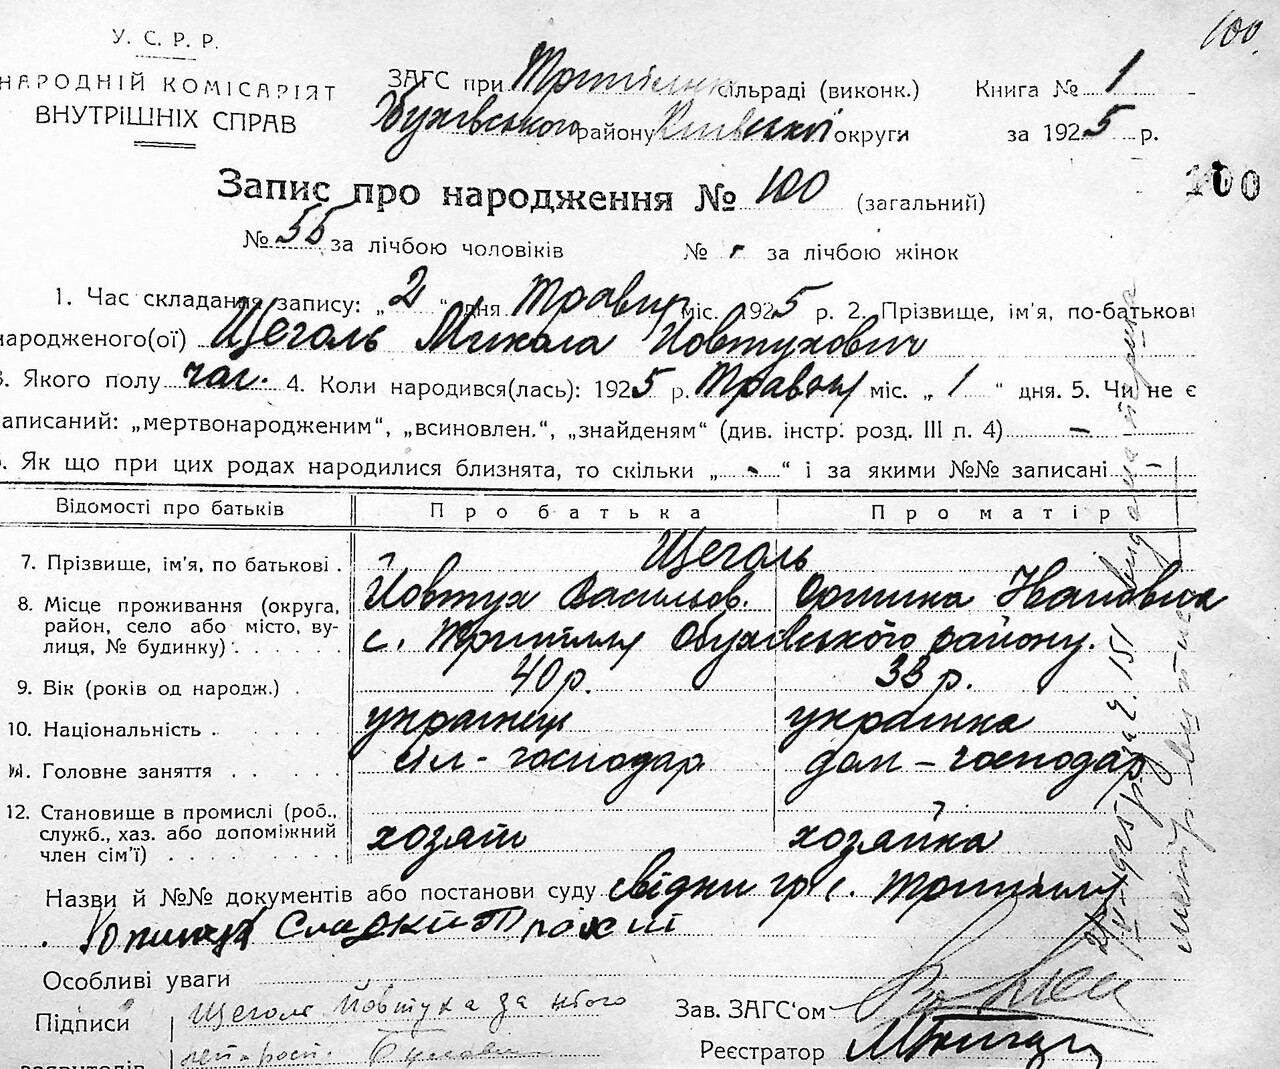 100.
У. С. Р. Р.
НАРОДНІЙ КОМІСАРІЯТ
ВНУТРІШНІХ СПРАВ
ЗАГС при Трипільск сільраді (виконк.) Книга № 1
Обухівського району Київської округи за 1925 р.
100
Запис про народження № 100 (загальний)
№ 55 за лічбою чоловіків № за лічбою жінок
1. Час складання запису: „2“ дня Травня міс. 1925 р. 2. Прізвище, ім'я, по-батькові
народженого(ої) Щеголь Микола Йовтухович
3. Якого полу чол. 4. Коли народився(лась): 1925 р. Травня міс. „1“ дня. 5. Чи не є
записаний: „мертвонародженим“, „всиновлен.“, „знайденям“ (див. інстр. розд. III п. 4) —
6. Як що при цих родах народилися близнята, то скільки „-“ і за якими №№ записані —
Відомості про батьків Про батька Про матір
7. Прізвище, ім'я, по батькові . Щеголь
Йовтух Васильов. Оришка Івановна
8. Місце проживання (округа,
район, село або місто, ву-
лиця, № будинку) . с. Трипілля Обухівського району.
9. Вік (років од народж.) . 40 р. 33 р.
10. Національність . українец українка
11. Головне заняття сіл-господар дом-господар
12. Становище в промислі (роб.,
служб., хаз. або допоміжний
член сім'ї) хозяїн хозяйка
Назви й №№ документів або постанови суду свідки гр. с. Трипілля
Особливі уваги
Підписи Щеголь Йовтуха за нього
заявителів
Зав. ЗАГС'ом
Реєстратор